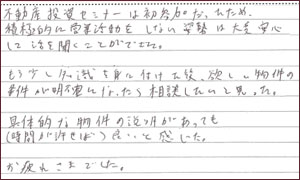 不動産投資セミナーは初参加だったため、
積極的に営業活動をしない姿勢は大変安心
して話を聞くことができた。
もう少し知識を身に付けた後、欲しい物件の
条件が明確になったら相談したいと思った。
具体的な物件の説明があっても
(時間が許せば)良いと感じた。
お疲れさまでした。